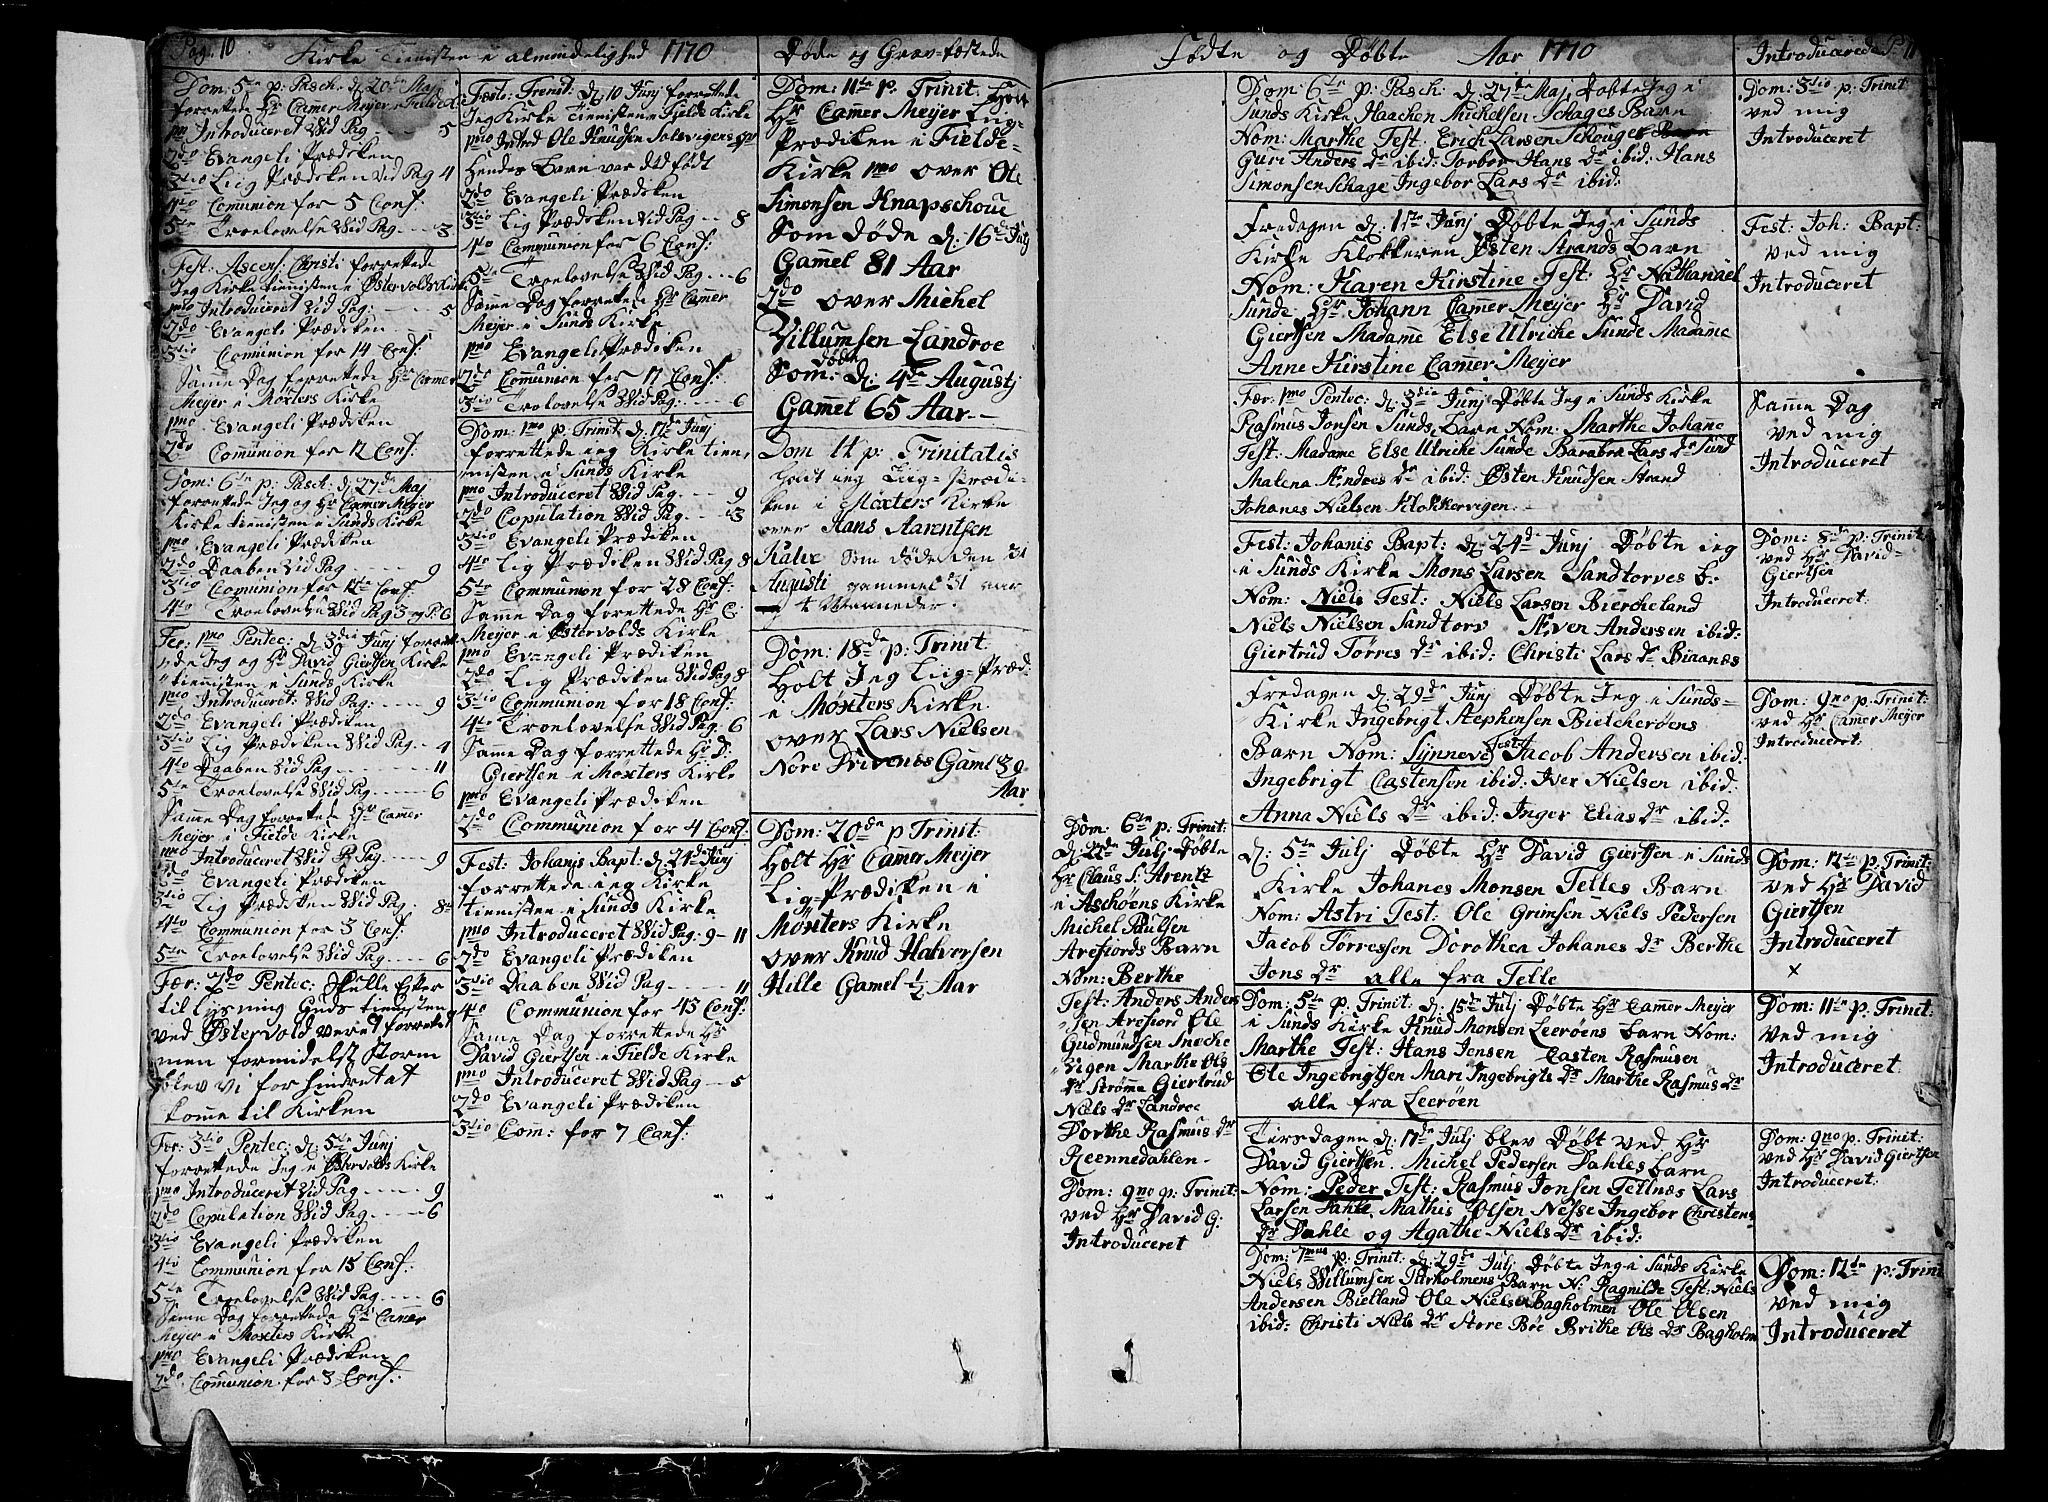 Pag: 10
Kirke Tienisten i almindelighed 1770
Dom: 5te p: Pasch: d: 20de Maj
forrettede Hr Camer Meijer i Fielde K
pmo Introduceret Wid Pag - - - 5
2do Evangeli Prædiken
3tio Liig Prædicken Vid Pag 4
4to Comunion for 5 Conf:
5te Troelovelse Wid Pag - - - 3
Fest: Ascens: Christi forrettede
Jeg Kirke tienisten i Østervolds Kirke
pmo Introduceret Vid Pag: - - - 5
2do Evangeli Prædiken
3tio Comunion for 14 Conf:
Samme Dag forrettede Hr Camer
Meijer i Møxters Kirke
pmo Evangeli Prædiken
2do Comunion for 12 Conf:
Dom: 6te p: Pasch: d: 27de Maj
forrettede Jeg og Hr Camer Meijer
Kirke tienisten i Sunds Kirke
pmo Evangeli Prædiken
2do Daaben Vid Pag - - - 9
3tio Comunion for Conf:
4to Troelovelse Wid Pag 3 og P: 6
Fer: pmo Pentec: d: 3die Junj forrette-
de Jeg og Hr David Giertsen Kirke
tienisten i Sunds Kirke
pmo Introduceret Wid Pag: - - - 9
2do Evangeli Prædiken
3tio Liig Prædiken Wid Pag - - 4
4to Daaben Vid Pag - - - 11
5te Troelovelse Wid Pag - - - 6
Samme Dag forrettede Hr Camer
Meijer i Fielde Kirke
pmo Introduceret Wid Pag - - - 9
2do Evangeli Prædiken
3tio Liig Prædiken Wid Pag: - 8
4to Communion for 3 Conf:
5te Troelovelse Wid Pag - - - 6
Fær: 2do Pentec: skulle Efter
til lysning Guds tienesten
ved Østervold veret forrettet
men formidelst Storm
blev vi for hindret at
komme til Kirken
Fær: 3tio Pentec: d: 5te Junj
forrettede Jeg i Østervolds Kirke
pmo Introduceret Vid Pag - - - 9
2do Copulation Wid Pag - - - 6
3tio Evangeli Prædiken
4to Communion for 15 Conf:
5te Troelovelse Wid Pag - - - 6
Samme Dag forrettede Hr Camer
Meijer i Moxters Kirke
pmo Evangeli Prædiken
2do Communion for 3 Conf:
Festo: Trenit: d: 10 Junj forrettede
Jeg Kirke Tienisten i Fielde Kirke
pmo Introd Ole Knudsen Solsvigens
Hendes Barn var død født
2do Evangeli Prædiken
3tio Lig Prædiken Vid Pag - - 8
4to Communion for 6 Conf:
5te Troelovelse Wid Pag - - 6
Samme Dag forrettede Hr Camer
Meyer i Sunds Kirke
pmo Evangeli Prædiken
2do Communion for 17 Conf:
3tio Troelovelse Wid Pag: - - - 6
Dom: pmo p: Trinit: d: 17de Junj
forrettede ieg Kirke tien,
nisten i Sunds Kirke
pmo Introduceret Wid Pag - - - 9
2do Copulation Wid Pag - - - 3
3tio Evangeli Prædiken
4to Lig Prædiken Wid Pag 8
5to Communion for 28 Conf:
Samme Dag forettede Hr C:
Meyer i Østervolds Kirke
pmo Evangeli Prædiken
2do Lig Prædiken Wid Pag 8
3tio Communion for 18 Conf:
4to Troelovelse Wid Pag - 6
Samme Dag forrettede Hr D:
Giertsen i Moxters Kirke
pmo Evangeli Prædiken
2do Communion for 4 Conf:
Fest: Johanis Bapt: d: 24de Junj
forrettede ieg Kirke
tienisten i Sunds Kirke
pmo Introduceret Wid Pag: 9 - 11
2do Evangeli Prædiken
3tio Daaben Wid Pag - - - 11
4to Communion for 43 Conf:
Samme Dag forrettede Hr
David Giertsen i Fielde Kirke
pmo Introduceret Wid Pag - - 5
2do Evangeli Prædiken
3tio Com: for 7 Conf:
Døde og Grav-fæstede
Dom: 11te p: Trinit: Holt
Hr Camer Meijer Liig-
Prædiken i Fielde-
Kirke pmo over Ole
Simonsen Knapschoue
Som døde d: 16de July
Gamel 81 Aar
2do over Michel
Villumsen Landroe
Som: døde d: 4de Augustj
Gamel 65 Aar -
Dom 14 p: Trinitatis
holdt ieg Liig-Prædi-
ken i Møxters Kirke
over Hans Aarentsen
Kalve som døde den 31
Augusti gammel 31 aar
4 Maaneder.
Dom: 18de p: Trinit:
Holt Jeg Liig-Præd:
i Møxters Kirke
over Lars Nielsen
Nore Drivenes Gaml 39
Aar
Dom: 20de p Trinit:
Holt Hr Camer Meijer
Lig-Prædiken i
Møxters Kirke
over Knud Halversen
Hille Gamel ½ Aar
Fødte og Døbte Aar 1770
Dom: 6te p: Trinit:
d: 22de Julj Døbte
Hr Claus S: Arentz
i Aschöens Kirke
Michel Paulsen
Arefiords Barn
Nom: Berthe
Test: Anders Anders
sen Arefiord Ole
Gudmundsen Snecke
Vigen Marthe Ols
dr Strömme Giertrud
Niels dr Landroe
Dorthe Rasmus dr
Reennedahlen -
Dom: 9no p: Trinit:
ved Hr David G:
Introduceret
Dom: 6te p: Pasch: d: 27de Maj Døbte Jeg i
Sunds Kirke Haachen Michelsen Schages Barn
Nom: Marthe Test. Erich Larsen Schouge
Guri Anders dr ibid: Torbor Hans dr ibid: Hans
Simonsen Schage Ingebor Lars dr ibid:
Fredagen d: 1ste Junj Døbte Jeg i Sunds
Kirke Klokkeren Østen Strands Barn
Nom: Karen Kirstine Test: Hr Nathanael
Sunde Hr Johann Camer Meijer Hr David
Giertsen Madame Else Ulriche Sunde Madame
Anne Kirstine Camer Meijer
Fær: pmo Pentec: d: 3die Junj Døbte Jeg i Sunds Kirke
Rasmus Jonsen Sunds Barn Nom: Marthe Johane
Test: Madame Else Ulriche Sunde Barabra Lars dr Sund
Malena Andres dr ibid: Østen Knudsen Strand
Johanes Nielsen Klokkervigen.
Fest: Johanis Bapt: d: 24de Junj Døbte ieg
i Sunds Kirke Mons Larsen Sandtorves b:
Nom: Niels Test: Niels Larsen Biercheland
Niels Nielsen Sandtorv Æven Andersen ibid:
Giertrud Torres dr ibid: Christi Lars dr Biaanæs
Fredagen d: 29de Junj Døbte Jeg i Sunds-
Kirke Ingebrigt Stephensen Bielcheröens
Barn Nom: Synneve Test: Jacob Andersen ibid:
Ingebrigt Castensen ibid: Iver Nielsen ibid:
Anna Niels dr ibid: Inger Elias dr ibid:
d: 5te Julj Døbte Hr David Giertsen i Sunds
Kirke Johanes Monsen Telles Barn
Nom: Astri Test: Ole Grimsen Niels Pedersen
Jacob Torressen Dorothea Johanes dr Berthe
Jons dr alle fra Telle
Dom: 5te p: Trinit: d: 15de Julj Døbte Hr Camer Meijer
i Sunds Kirke Knud Monsen Leeröens barn Nom:
Marthe Test: Hans Jensen Casten Rasmusen
Ole Ingebrigtsen Mari Ingebrigts dr Marthe Rasmus dr
alle fra Leeröen
Tirsdagen d: 17de Julj blev Døbt ved Hr
David Giertsen. Michel Pedersen Dahles barn
Nom: Peder Test: Rasmus Jonsen Tellnæs Lars
Larsen Dahle, Mathis Olsen Nesse Ingebor Christens
dr Dahle og Agathe Niels dr ibid:
Dom: 7mus p: Trinit: d: 29de Julj Døbte Jeg i Sunds Kirke
Niels Willumsen Turholmens Barn N: Ragnilde Test: Niels
Andersen Bielland Ole Nielsen Bagholmen Ole Olsen
ibid: Christi Niels dr Aore Böe Brithe Ols dr Bagholm
Introducerede P: 11
Dom: 3tio p: Trinit
ved mig
Introduceret
Fest: Joh: Bapt:
ved mig
Introduceret
Samme Dag
ved mig
Introduceret
Dom: 8de p: Trinit:
ved Hr David-
Giertsen
Introduceret:
Dom: 9no p: Trinit:
ved Hr Camer Meijer
Introduceret:
Dom: 12te p: Trinit:
ved Hr David
Giertsen
Introduceret
x
Dom: 11te p: Trinit:
ved mig
Introduceret
Dom: 9no p: Trinit:
ved Hr David Giertsen
Introduceret:
Dom: 12te p: Trini
ved mig
Introduceret